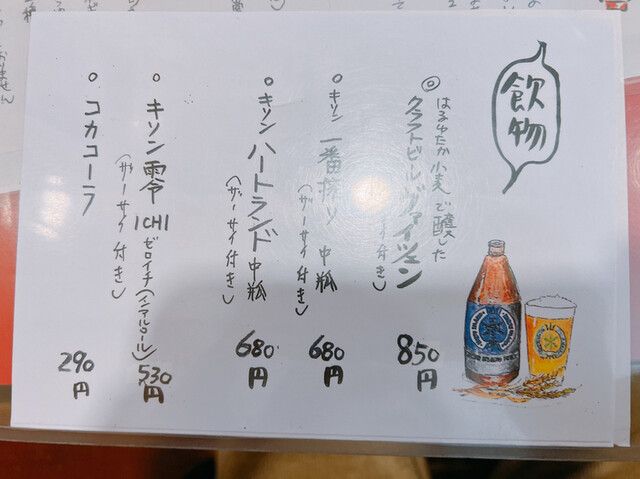 飲物
◎ はるゆたか小麦で醸した
クラフトビール ヴァイツェン
850円
○ キリン 一番搾り 中瓶
(ザーサイ付き)
680円
○ キリン ハートランド 中瓶
(ザーサイ付き)
680円
○ キリン 零ICHI
ゼロイチ(ノンアルコール)
(ザーサイ付き)
530円
○ コカコーラ
290円